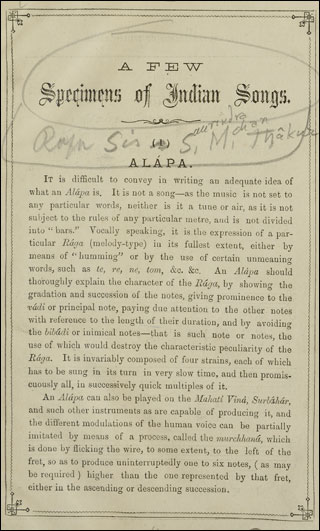 A FEW
Specimens of Indian Songs.
aurindra
Raja Sir S. M. Thâkur
(1)
ALÁPA.
IT is difficult to convey in writing an adequate idea of
what an Alápa is. It is not a song—as the music is not set to
any particular words, neither is it a tune or air, as it is not
subject to the rules of any particular metre, and is not divided
into "bars." Vocally speaking, it is the expression of a par-
ticular Rága (melody-type) in its fullest extent, either by
means of "humming" or by the use of certain unmeaning
words, such as te, re, ne, tom, &c. &c. An Alápa should
thoroughly explain the character of the Rága, by showing the
gradation and succession of the notes, giving prominence to the
vádi or principal note, paying due attention to the other notes
with reference to the length of their duration, and by avoiding
the bibádi or inimical notes—that is such note or notes, the
use of which would destroy the characteristic peculiarity of the
Rága. It is invariably composed of four strains, each of which
has to be sung in its turn in very slow time, and then promis-
cuously all, in successively quick multiples of it.
An Alápa can also be played on the Mahatí Víná, Surbáhár,
and such other instruments as are capable of producing it, and
the different modulations of the human voice can be partially
imitated by means of a process, called the murchhaná, which
is done by flicking the wire, to some extent, to the left of the
fret, so as to produce uninterruptedly one to six notes, (as may
be required) higher than the one represented by that fret,
either in the ascending or descending succession.